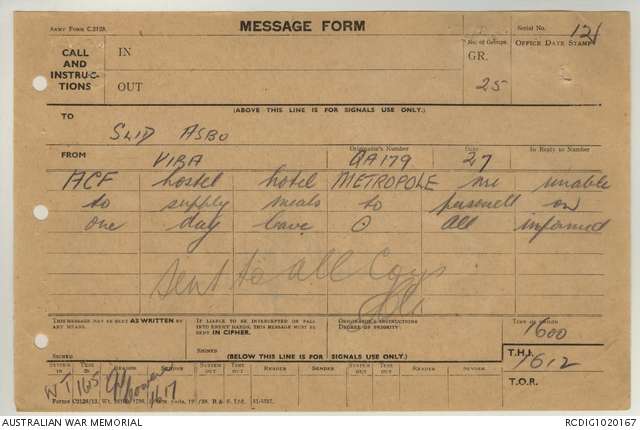 ARMY FORM C.2128.
MESSAGE FORM
Serial No. 121
CALL AND INSTRUCTIONS
IN
OUT
No. of Groups.
GR.
25
OFFICE DATE STAMP
(ABOVE THIS LINE IS FOR SIGNALS USE ONLY.)
TO
ASBO
FROM
Originator's Number
Date
In Reply to Number
VIBA QA179 27
ACF hostel hotel METROPOLE unable
to supply meals to personell on
one day leave ⊙ All informed
Sent to all Coys
THIS MESSAGE MAY BE SENT AS WRITTEN BY ANY MEANS.
IF LIABLE TO BE INTERCEPTED OR FALL INTO ENEMY HANDS, THIS MESSAGE MUST BE SENT IN CIPHER.
ORIGINATOR'S INSTRUCTIONS
DEGREE OF PRIORITY
TIME OF ORIGIN
1600
SIGNED
SIGNED
(BELOW THIS LINE IS FOR SIGNALS USE ONLY.)
T.H.I.
1612
T.O.R.
SYSTEM IN
TIME IN
READER
SENDER
SYSTEM OUT
TIME OUT
READER
SENDER
SYSTEM OUT
TIME OUT
READER
SENDER
WT
1617
AUSTRALIAN WAR MEMORIAL
RCDIG1020167